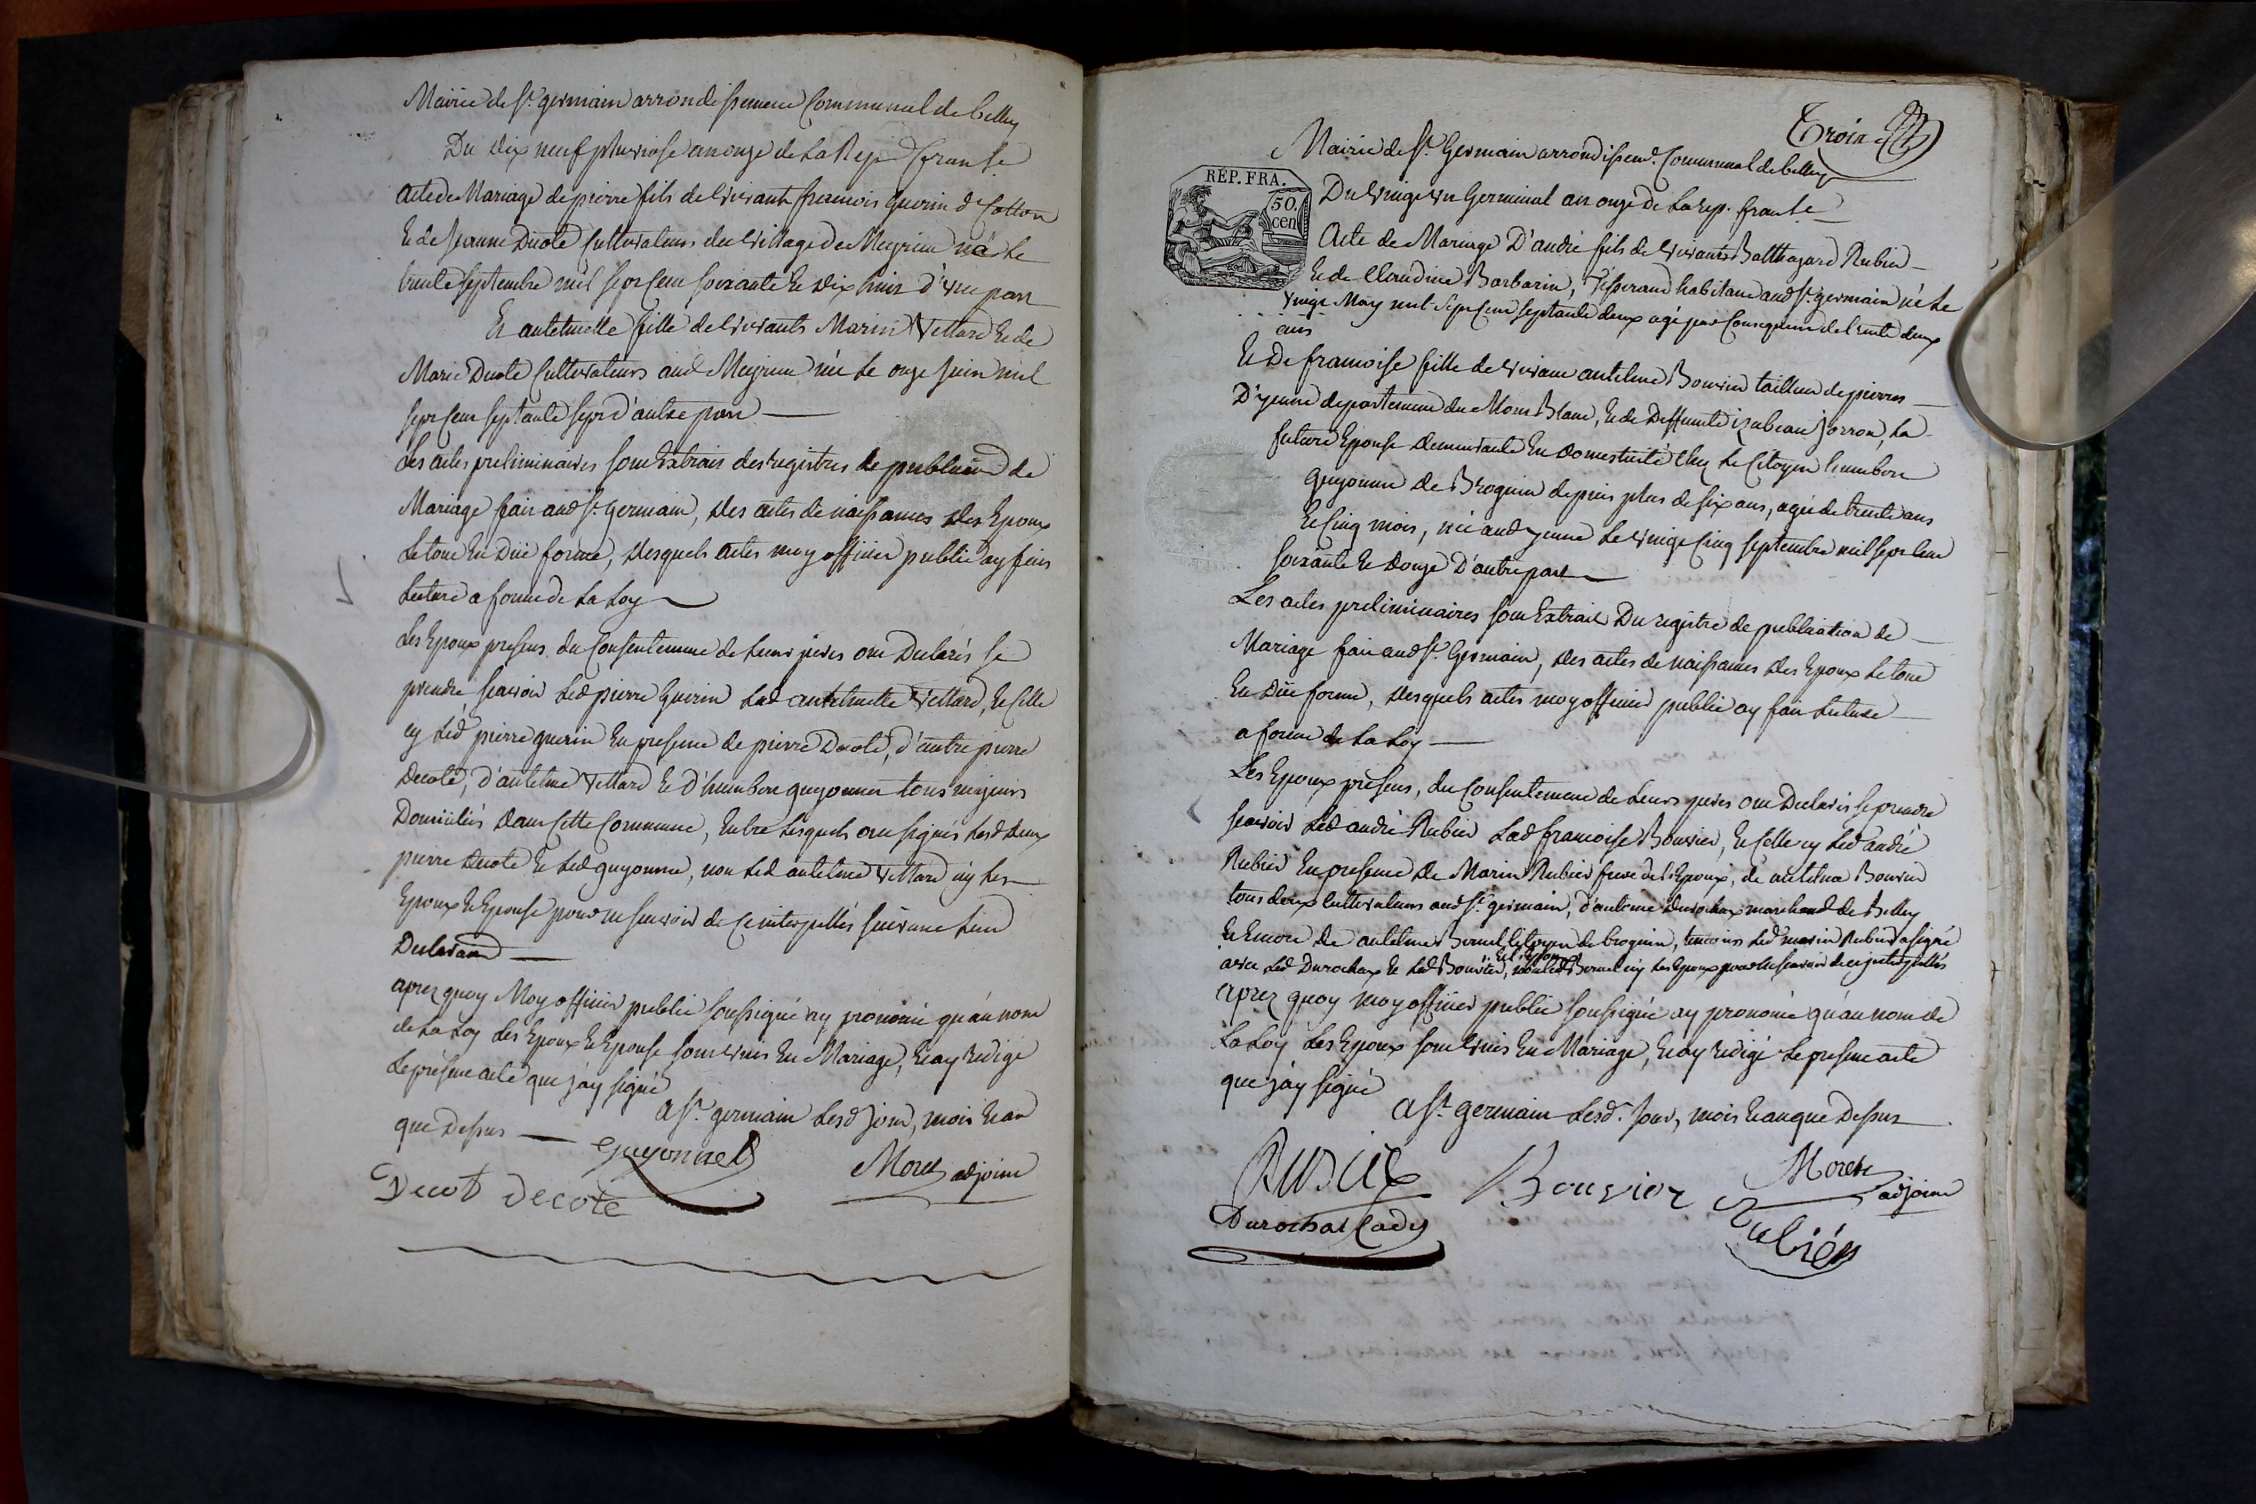 Mairie de St. germain arrondissement Communal de belley
Du dix neuf pluviose an onze de la Rep. franse
acte de Mariage de pierre fils de vivants francois Guerin d Cotton
Et de Jeanne Decote Cultivateurs du village de Meyrieu né le
trente septembre mil sept Cent soixante Et dix huit d'une part
Et antelmette fille de vivants Marin Vettard Et de
Marie Decote Cultivateurs aud Meyrieu née le onze Juin mil
sept Cent septante sept d'autre part
Les actes preliminaires sont Extrais des registres de publication de
Mariage fait aud St. germain, des actes de naissances des Epoux
Le tout En Düe forme, desquels actes moy officier public ay fait
Lecture a forme de La Loy
Les Epoux presens du Consentement de Leurs peres ont Declarés se
prendre scavoir Led pierre Guerin Lad antelmette Vettard, Et Celle
cy Led pierre guerin En presence de pierre Decote, d'autre pierre
Decote, d'antelme Vettard Et d'humbert guyonnet tous majeurs
Domiciliés dans Cette Commune, Entre Lesquels ont signés Lesd deux
pierre Decote Et Led guyonnet, non Led antelme Vettard ny Les
Epoux Et Epouse pour ne scavoir de Ce interpellés suivant Leur
Declaration
aprez quoy Moy officier public soussigné ay prononcé qu'au nom
de La Loy Les Epoux Et Epouse sont unis En Mariage, Et ay redigé
Le present acte que j'ay signé
a St. germain Lesd Jour, mois Et an
que Dessus
guyonnet
Moret adjoint
Decot decote
Troix
Mairie de St. Germain arrondissemt. Communal de belley
REP. FRA.
50. cen
Du vingt un Germinal an onze de La rep. franse
Acte de Mariage D'andré fils de vivants Balthazard Rubier
Et de Claudine Barbarin, Tisserand habitant aud St. germain né le
vingt May mil sept Cent septante deux agé par Consequent de trente deux
ans
Et De francoise fille de vivant antelme Bouvier tailleur de pierres
D'yenne departement du Mont Blanc, Et de Deffunte izabeau Jorron, La
future Epouse demeurante En domesticité chez Le Citoyen humbert
guyonnet de Brognin depuis plus de six ans, agée de trente ans
Et Cinq mois, née aud yenne Le vingt Cinq septembre mil sept Cent
soixante Et douze D'autre part
Les actes preliminaires sont Extrait Du registre de publication de
Mariage fait aud St. Germain, des actes de naissances des Epoux Le tout
En Düe forme, desquels actes moy officier public ay fait Lecture
a forme de La Loy
Les Epoux presens, du Consentement de Leurs peres ont Declarés se prendre
scavoir Led andré Rubier Lad francoise Bouvier, Et Celle cy Led andré
Rubier En presence de Marin Rubier frere de l'Epoux, de antelme Bouvier
tous deux Cultivateurs aud St. germain, d'antoine Durochat marchand de Belley
Et Encore de antelme Bornel Citoyen de brognin, temoins Led marin Rubier a signé
avec Led Durochat Et Led Bouvier, Et L'Epoux non Led Bornel ny Les Epoux pour ne scavoir de ce interpellés
aprez quoy moy officier public soussigné ay prononcé qu'au nom de
La Loy Les Epoux sont unis En Mariage, Et ay redigé Le present acte
que j'ay signé
a St. germain Lesd. Jour, mois Et an que Dessus
Bouvier
Moret
adjoint
Durochat Cady
Rubier